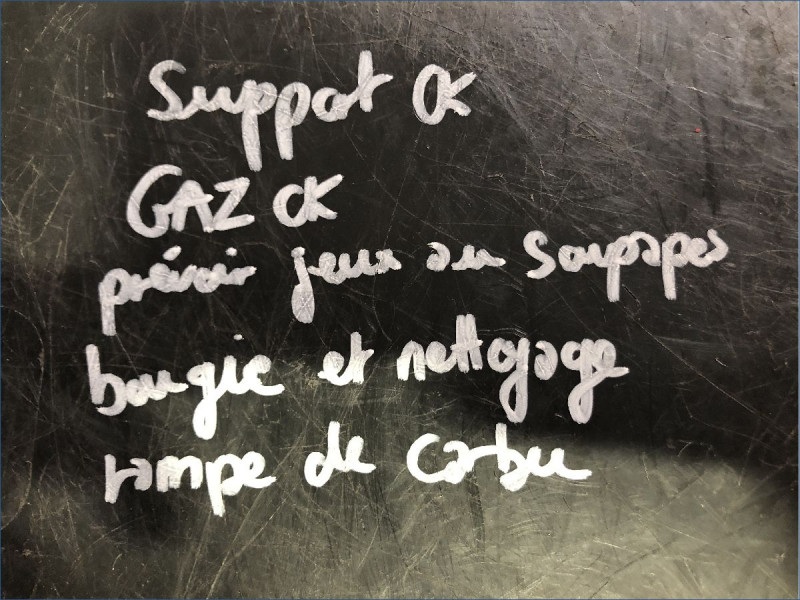 Support OK
GAZ OK
prévoir jeux au soupapes
bougie et nettoyage
rampe de carbu